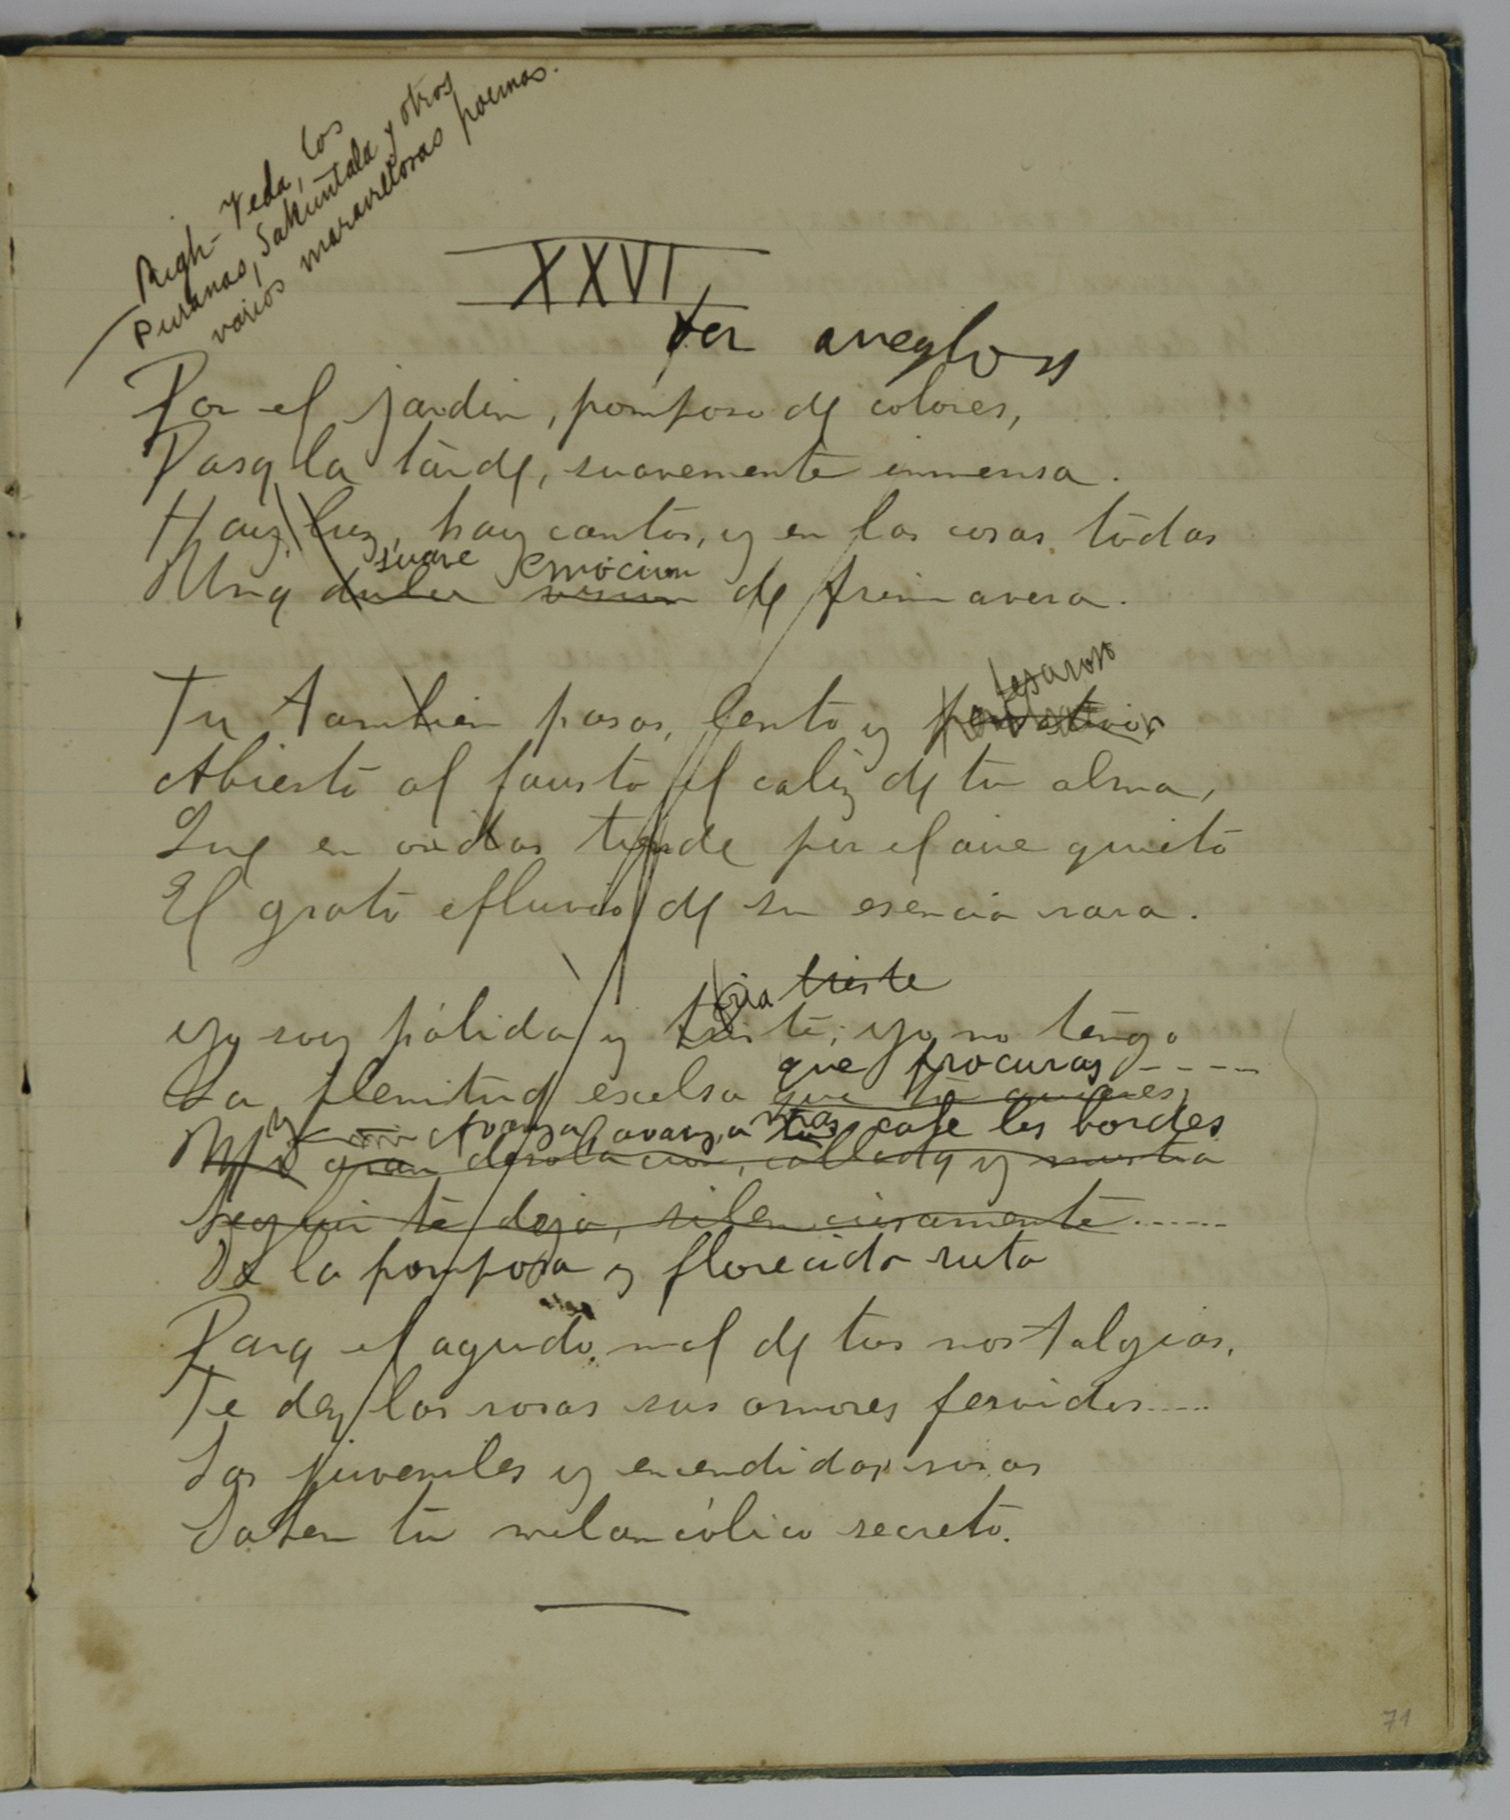 Righ-Veda, los
Puranas, Sakuntala y otros
varios maravillosos poemas.
XXVI
Ver arreglos
Por el jardin, pomposo de colores,
Pasa la tarde, suavemente inmensa.
Hay luz, hay cantos, y en las cosas todas
suave emocion
Una dulce vision de primavera.
tesaroso
Tu tambien pasas, lento y pensativo,
Abierto al fausto el caliz de tu alma,
Que en ondas tiende por el aire quieto
El grato efluvio de su esencia rara.
fria triste
Yo soy pálida y triste; yo no tengo
que procuras -----
La plenitud excelsa que tú quieres,
Y Avanza, avanza, mas cabe los bordes
Mi gran desolacion, callada y mustia
Seguir te deja, silenciosamente......
De la pomposa y florecida ruta
Para el agudo mal de tus nostalgias,
Te den las rosas sus amores fervidos.....
Las juveniles y encendidas rosas
Saben tu melancólico secreto.
71